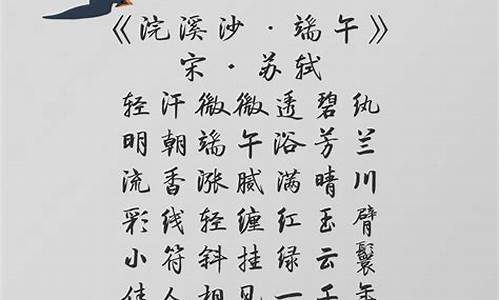 《浣溪沙·端午》
宋·苏轼
轻汗微微透碧纨
明朝端午浴芳兰
流香涨腻满晴川
彩线轻缠红玉臂
小符斜挂绿云鬟
佳人相见一千年